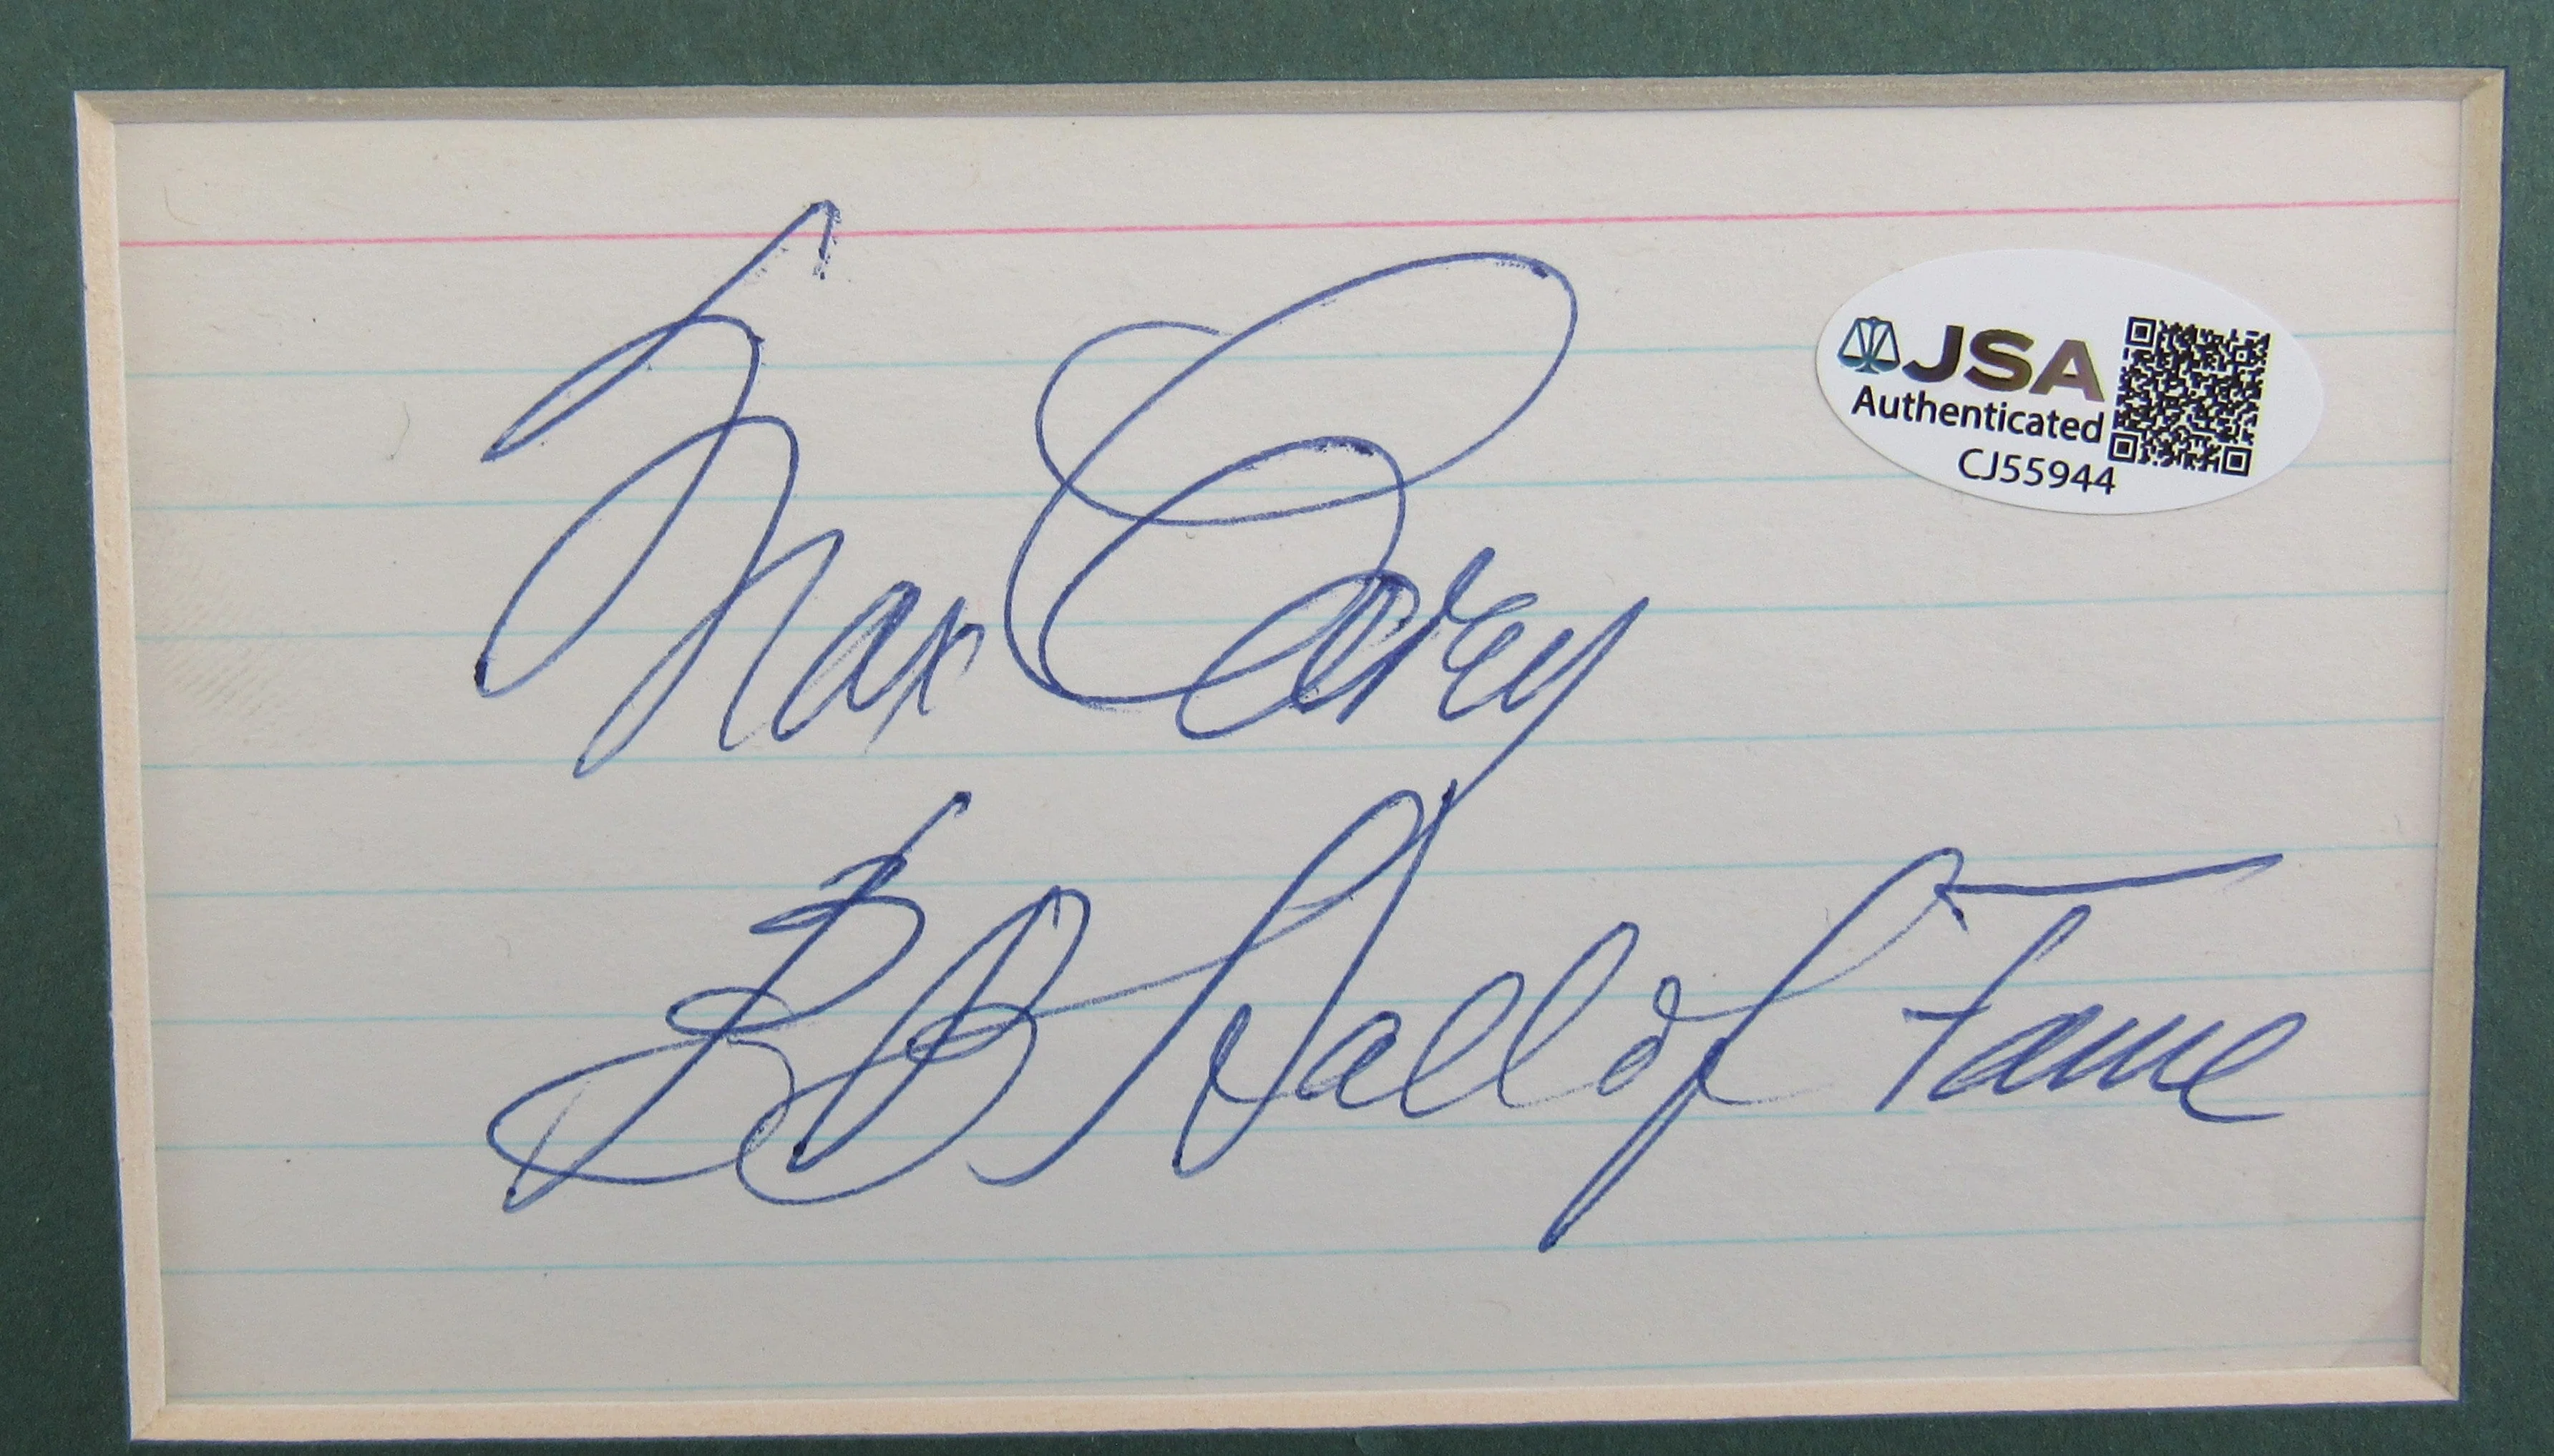 Max Carey
BB Hall of Fame
JSA
Authenticated
CJ55944